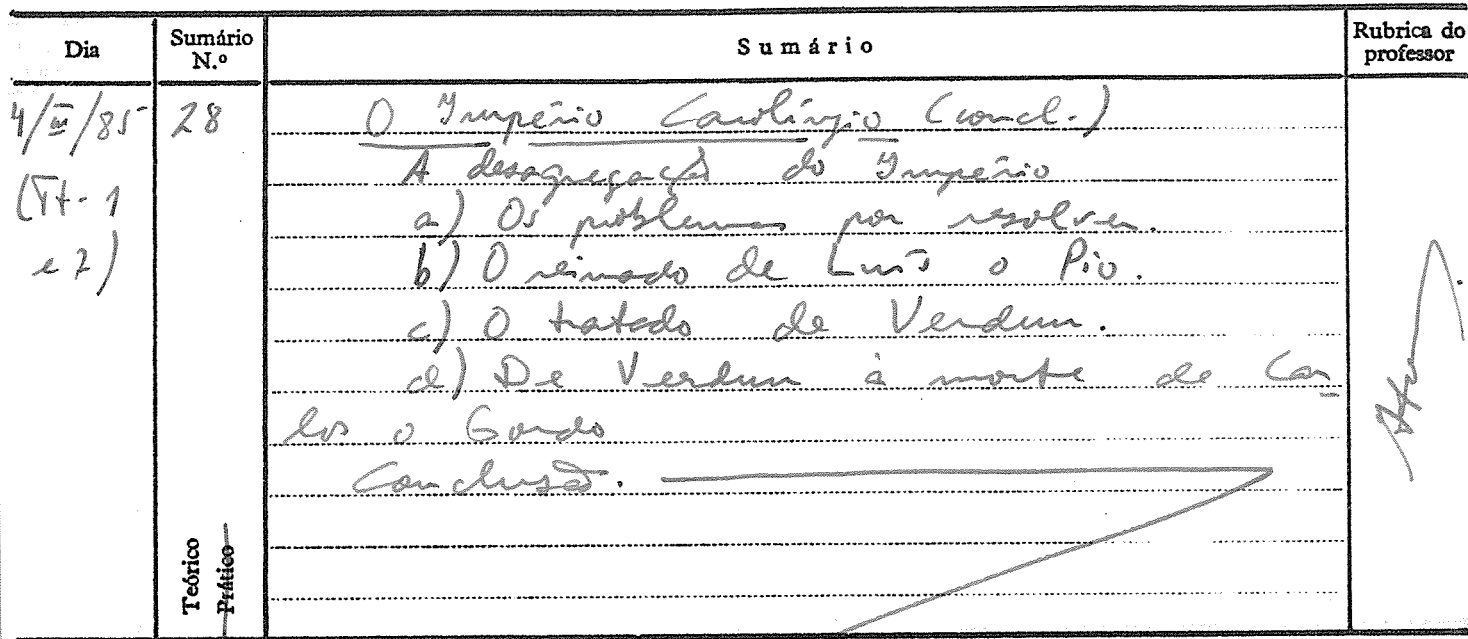 Dia
Sumário N.º
Sumário
Rubrica do professor
4/III/85
28
(Tt-1
e 2)
O Império Carolíngio (concl.)
A desagregação do Império
a) Os problemas por resolver.
b) O reinado de Luís o Pio.
c) O tratado de Verdun.
d) De Verdun à morte de Car
los o Gordo
Conclusão.
Teórico
Prático